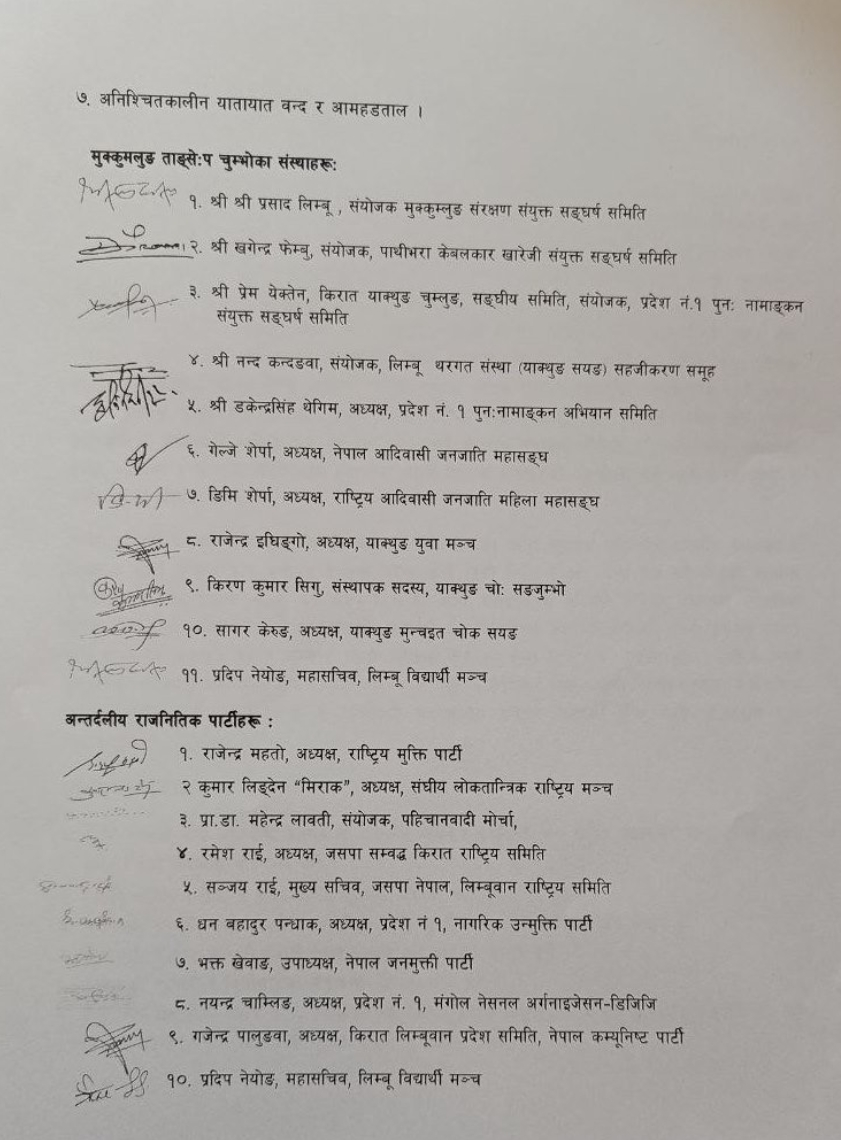 ७. अनिश्चितकालीन यातायात वन्द र आमहडताल ।
मुक्कुमलुङ ताङ्से:प चुम्भोका संस्थाहरू:
१. श्री श्री प्रसाद लिम्बू , संयोजक मुक्कुम्लुङ संरक्षण संयुक्त सङ्घर्ष समिति
२. श्री खगेन्द्र फेम्बु, संयोजक, पाथीभरा केबलकार खारेजी संयुक्त सङ्घर्ष समिति
३. श्री प्रेम येक्तेन, किरात याक्थुङ चुम्लुङ, सङ्घीय समिति, संयोजक, प्रदेश नं.१ पुन: नामाङ्कन
संयुक्त सङ्घर्ष समिति
४. श्री नन्द कन्दङवा, संयोजक, लिम्बू थरगत संस्था (याक्थुङ सयङ) सहजीकरण समूह
५. श्री डकेन्द्रसिंह थेगिम, अध्यक्ष, प्रदेश नं. १ पुन:नामाङ्कन अभियान समिति
६. गेल्जे शेर्पा, अध्यक्ष, नेपाल आदिवासी जनजाति महासङ्घ
७. डिमि शेर्पा, अध्यक्ष, राष्ट्रिय आदिवासी जनजाति महिला महासङ्घ
८. राजेन्द्र इघिङ्गो, अध्यक्ष, याक्थुङ युवा मञ्च
९. किरण कुमार सिगु, संस्थापक सदस्य, याक्थुङ चो: सङजुम्भो
१०. सागर केरुङ, अध्यक्ष, याक्थुङ मुन्चइत चोक सयङ
११. प्रदिप नेयोङ, महासचिव, लिम्बू विद्यार्थी मञ्च
अन्तर्दलीय राजनितिक पार्टीहरू :
१. राजेन्द्र महतो, अध्यक्ष, राष्ट्रिय मुक्ति पार्टी
२ कुमार लिङ्देन “मिराक”, अध्यक्ष, संघीय लोकतान्त्रिक राष्ट्रिय मञ्च
३. प्रा.डा. महेन्द्र लावती, संयोजक, पहिचानवादी मोर्चा,
४. रमेश राई, अध्यक्ष, जसपा सम्वद्ध किरात राष्ट्रिय समिति
५. सञ्जय राई, मुख्य सचिव, जसपा नेपाल, लिम्बूवान राष्ट्रिय समिति
६. धन बहादुर पन्धाक, अध्यक्ष, प्रदेश नं १, नागरिक उन्मुक्ति पार्टी
७. भक्त खेवाङ, उपाध्यक्ष, नेपाल जनमुक्ती पार्टी
८. नयन्द्र चाम्लिङ, अध्यक्ष, प्रदेश नं. १, मंगोल नेसनल अर्गनाइजेसन-डिजिजि
९. गजेन्द्र पालुङवा, अध्यक्ष, किरात लिम्बूवान प्रदेश समिति, नेपाल कम्यूनिष्ट पार्टी
१०. प्रदिप नेयोङ, महासचिव, लिम्बु विद्यार्थी मञ्च